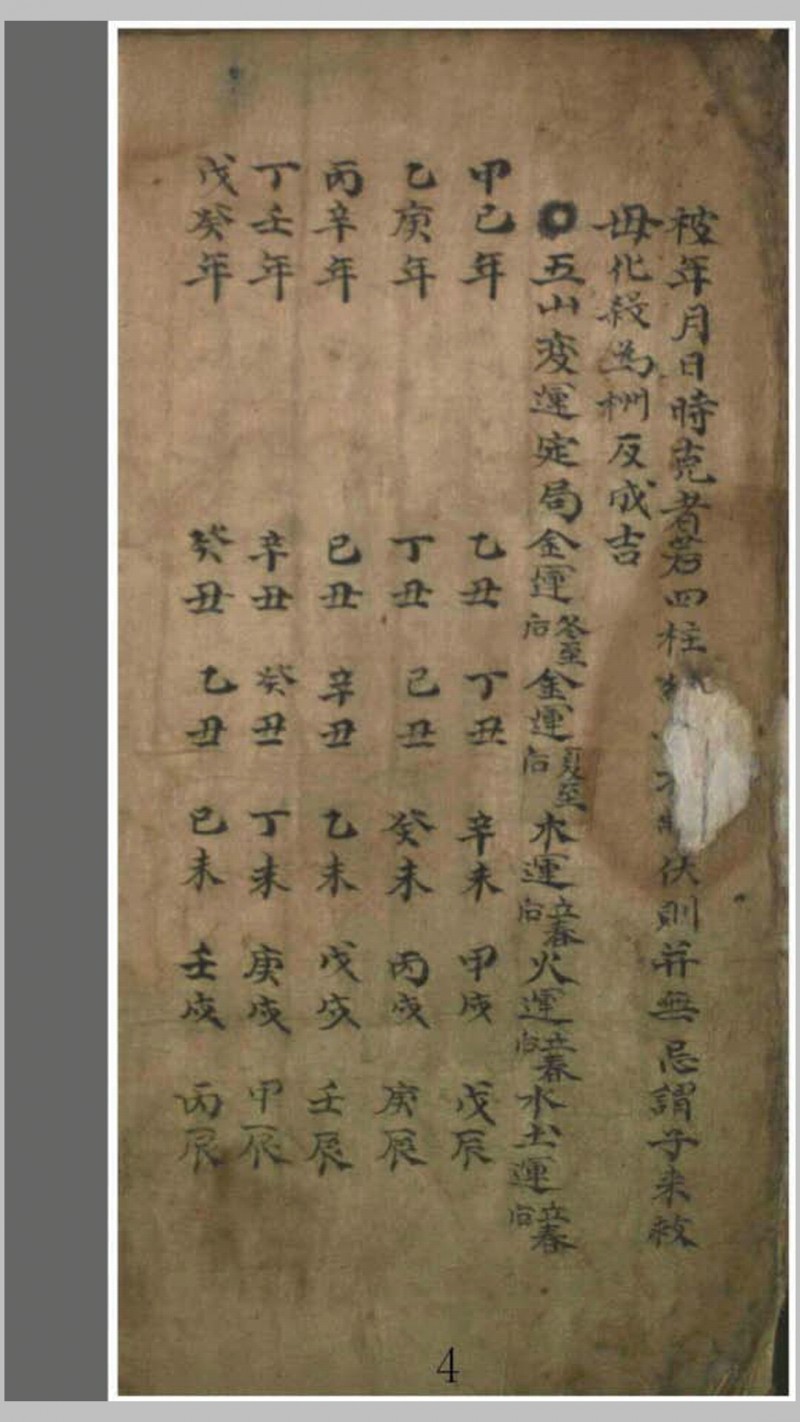 被年月日時克者若四柱制伏則并無忌謂子来救
母化殺為权反成吉
〇五山変運定局金運冬至后金運夏至后水運立春后火運立春后水土運立春后
甲己年 乙丑 丁丑 辛未 甲戌 戊辰
乙庚年 丁丑 己丑 癸未 丙戌 庚辰
丙辛年 己丑 辛丑 乙未 戊戌 壬辰
丁壬年 辛丑 癸丑 丁未 庚戌 甲辰
戊癸年 癸丑 乙丑 己未 壬戌 丙辰
4